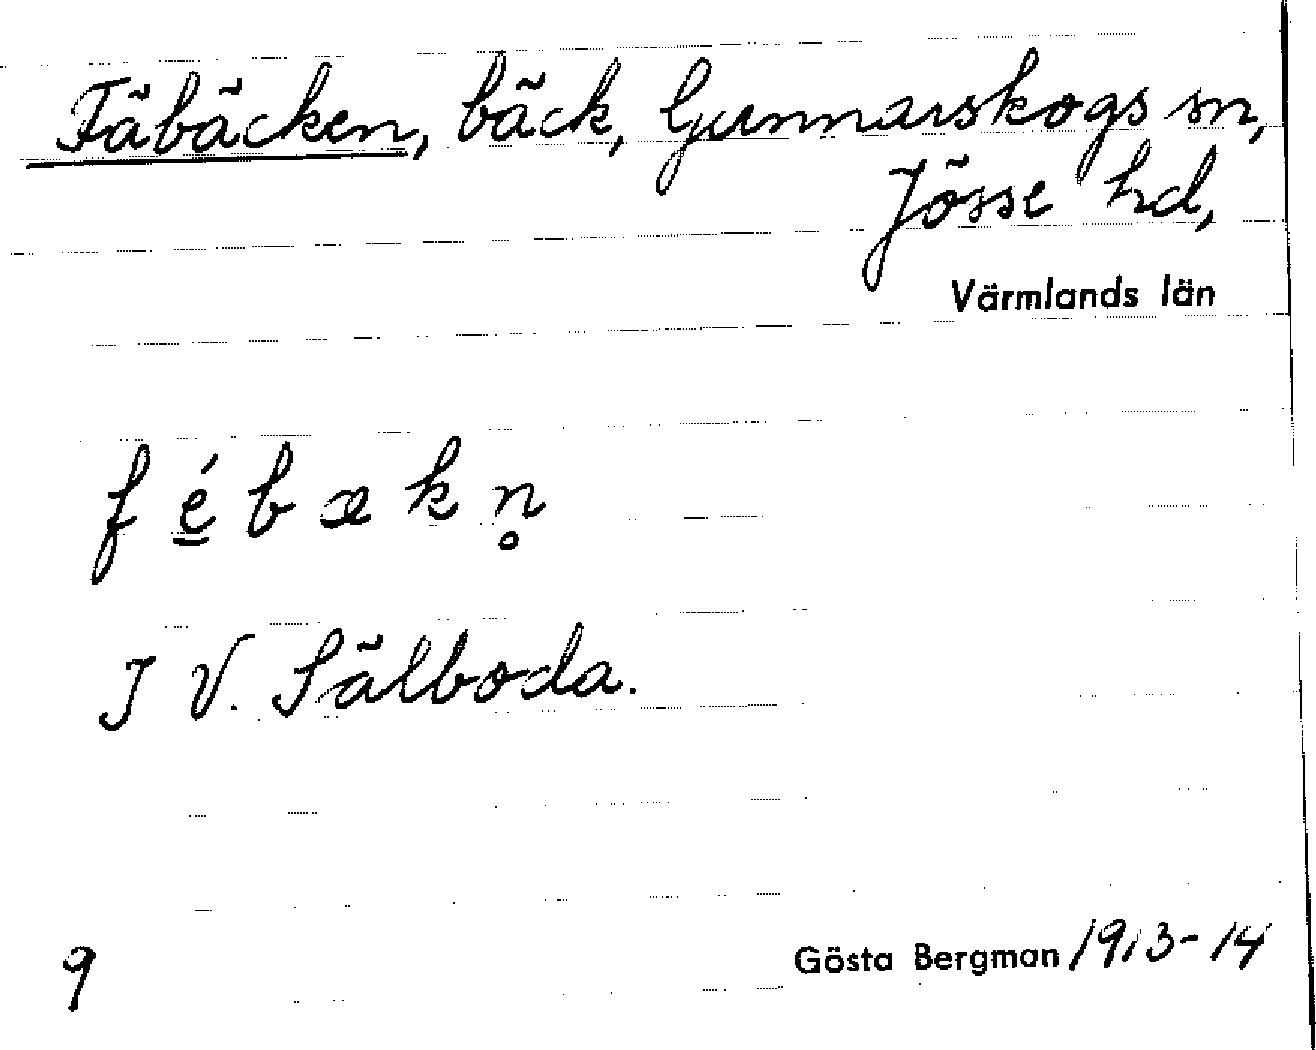 Fäbäcken, bäck, Gunnarskogs sn,
Jösse hd,
Värmlands län
f é b æ k n̥
I V. Sälboda.
9
Gösta Bergman 1913-14